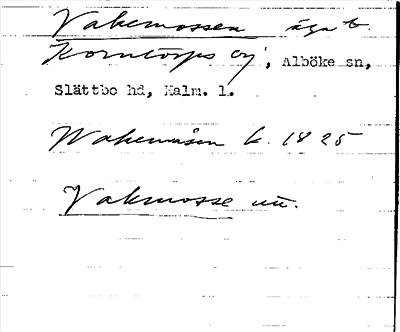 Vakemossen äga t.
Korntorps by, Alböke sn,
Slättbo hd, Kalm. l.
Wakemåsen k. 1825
Vakmosse uu.